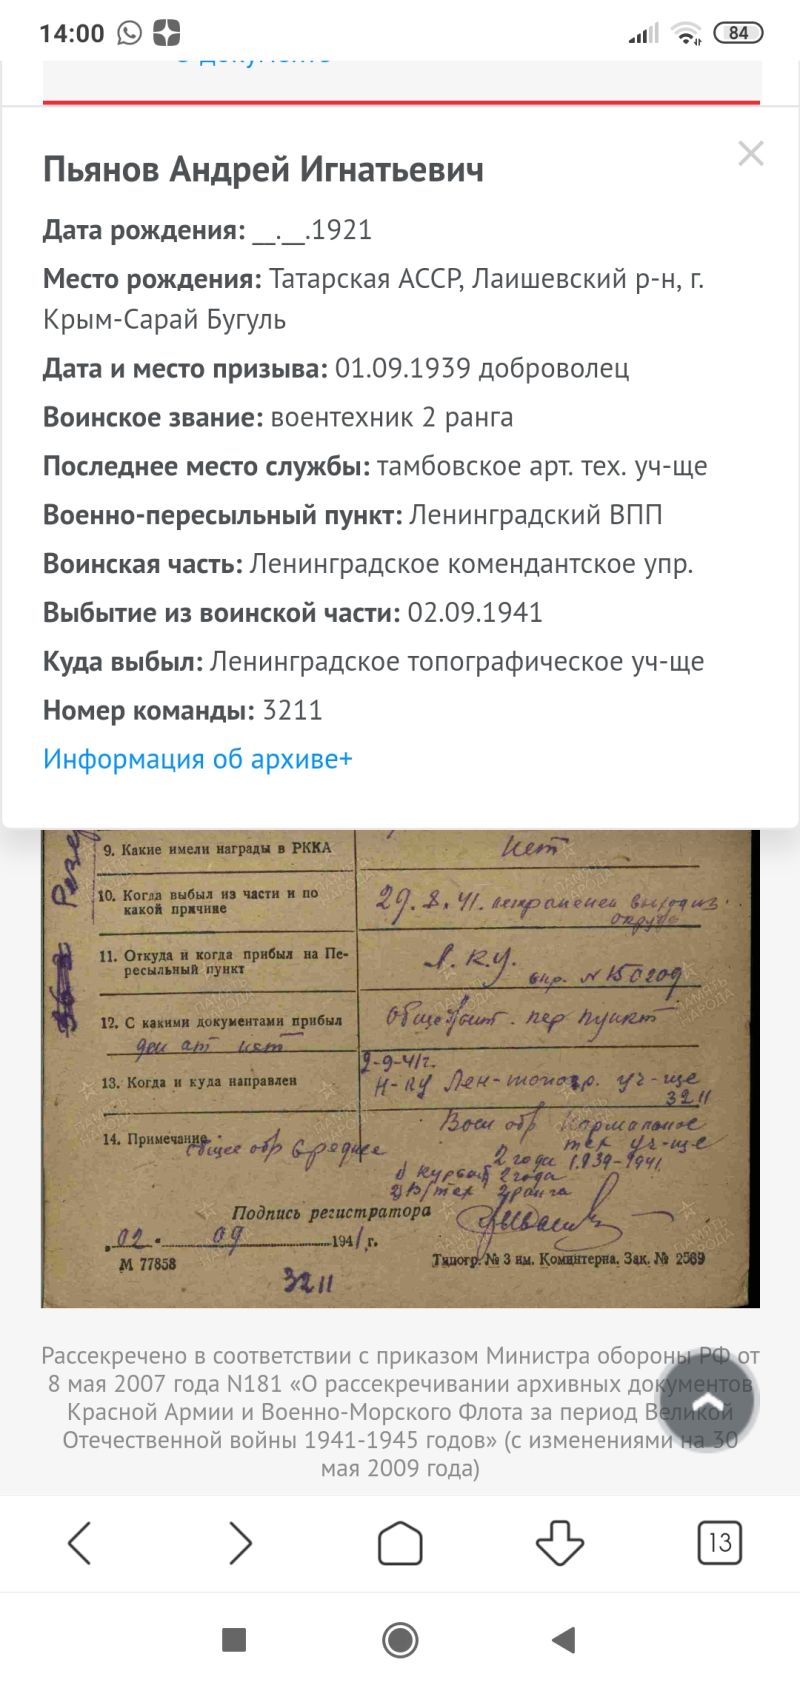 14:00
84
о документе
Пьянов Андрей Игнатьевич
Дата рождения: __.__.1921
Место рождения: Татарская АССР, Лаишевский р-н, г.
Крым-Сарай Бугуль
Дата и место призыва: 01.09.1939 доброволец
Воинское звание: воентехник 2 ранга
Последнее место службы: тамбовское арт. тех. уч-ще
Военно-пересыльный пункт: Ленинградский ВПП
Воинская часть: Ленинградское комендантское упр.
Выбытие из воинской части: 02.09.1941
Куда выбыл: Ленинградское топографическое уч-ще
Номер команды: 3211
Информация об архиве+
9. Какие имели награды в РККА
Нет
10. Когда выбыл из части и по
какой причине
29.8.41.
11. Откуда и когда прибыл на Пе-
ресыльный пункт
Л.К.У.
№ 150209
12. С какими документами прибыл
нет
пер пункт
13. Когда и куда направлен
2-9-41г.
Н-ку Лен-топогр. уч-ще
3211
14. Примечание
общее обр среднее
тех уч-ще
2 года 1939-1941
2 года
2) В/тех 2 ранга
Подпись регистратора
„02" 09 1941 г.
М 77858
Типогр. № 3 им. Коминтерна. Зак. № 2569
3211
Рассекречено в соответствии с приказом Министра обороны РФ от
8 мая 2007 года N181 «О рассекречивании архивных документов
Красной Армии и Военно-Морского Флота за период Великой
Отечественной войны 1941-1945 годов» (с изменениями на 30
мая 2009 года)
13